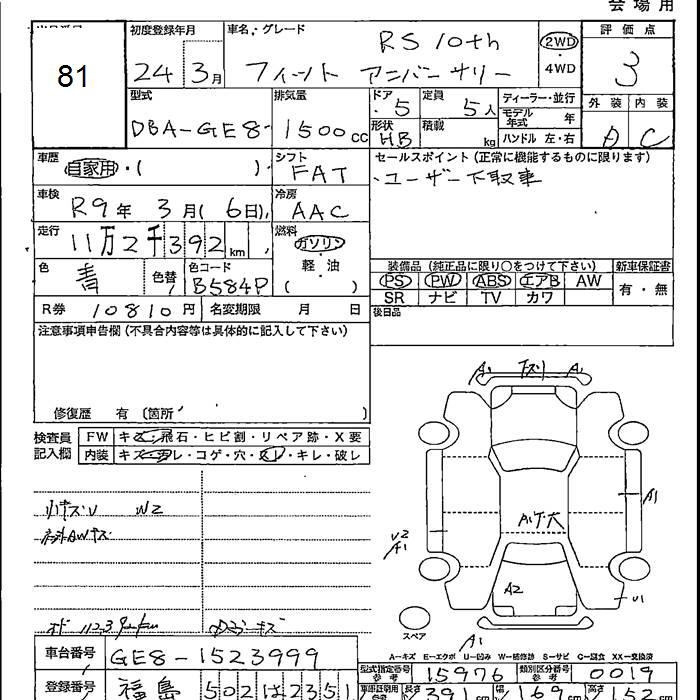 会場用
81
初度登録年月 車名・グレード 評価点
24 3月 RS 10th
フィット アニバーサリー
2WD
・
4WD
3
外装 内装
A C
型式 排気量 ドア 定員 ディーラー・並行
DBA-GE8 1500cc ・5 5人 モデル年式 年
形状 積載 ハンドル 左・右
HB kg
車歴 シフト セールスポイント（正常に機能するものに限ります）
自家用・（ ） FAT ・ユーザー下取車
車検 冷房
R9年 3月（6日） AAC
走行 燃料
11万2千392km ガソリン
・
軽・油
（ ）
色 青 色替 色コード B584P
装備品（純正品に限り○をつけて下さい） 新車保証書
PS PW ABS エアB AW 有・無
SR ナビ TV カワ
R券 10810円 名変期限 月 日 後日品
注意事項申告欄（不具合内容等は具体的に記入して下さい）
修復歴 有（箇所 ）
検査員記入欄
FW キズ・飛石・ヒビ割・リペア跡・X要
内装 キズ・コゲ・穴・スレ・キレ・破レ
A1 A1
A1
U2
A1
A2
U1
A1
W2
スペア
A－キズ E－エクボ U－凹み W－補修跡 S－サビ C－腐食 XX－交換済
車台番号 GE8-1523999
型式指定番号 参考 15976 類別区分番号 参考 0019
登録番号 福島 502 は 2351
長さ 391cm 幅 169cm 高さ 152cm